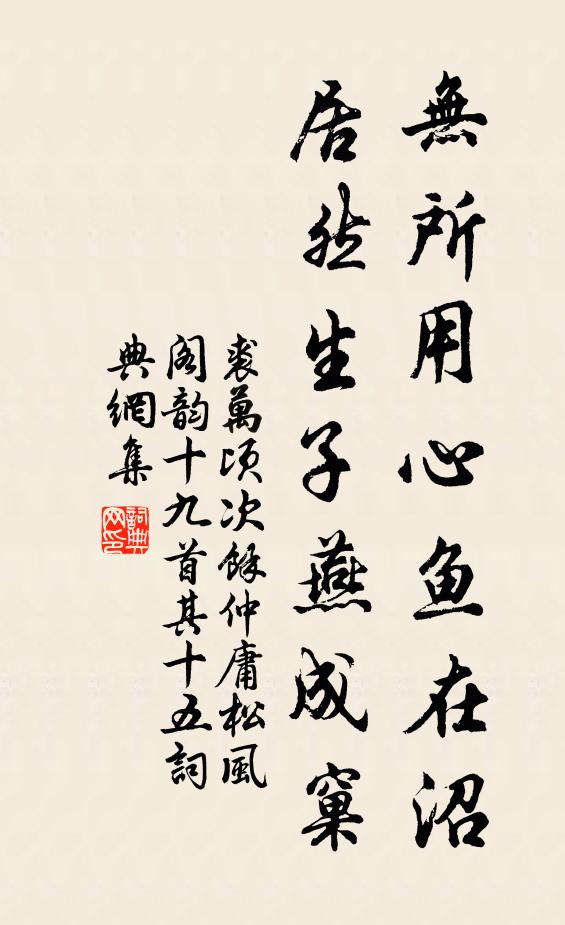 無所用心鱼在沼
居然生子燕成窠
裘萬頃次餘仲庸松風
阁韵十九首其十五詞
典網集
詞典
网印